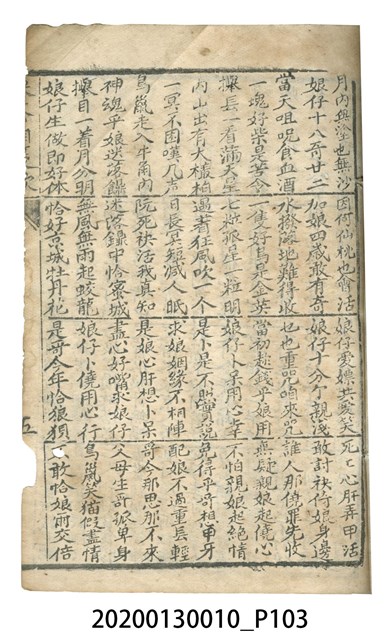 月內與澄也無沙 因何仙桃也會活 娘仔愛嫖共爱笑 死乞心肝弄甲活
娘仔十八哥廿二 加娘四歲敢有奇 娘仔十分了親淺 敢討袂倚娘身邊
當天咀呪食血酒 水撥落地難得收 也乜重咒唱來咒 誰人那傍罪先收
一塊好柴是苦令 一隻好鳥是金英 當初趁錢乎娘用 無疑親娘起僥心
攑長一看滿天星 七粒孤星一粒明 娘仔卜呆用心幸 不怕親娘起絕情
內山出有大樣柏 過著狂風吹一个 是卜是不照實說 免得乎哥相牵牙
一冥不困嘆几声 日長冥短減人眠 求娘姻緣不相陣 配娘不過重長輕
鳥鼠走入牛角內 阮死袂活我真知 是娘心肝想卜呆 哥今那思那不來
神魂乎娘迷落鐤 迷落鐤中恰蜜城 盡心好嘴求娘仔 父母生哥孤单身
攑目一着月分明 無風無雨起蛟龍 娘仔卜僥用心行 鳥鼠笑猫假盡情
娘仔生做即好体 恰好京城牡丹花 是哥今年恰狼狽 不敢恰娘兩交倍
五
20200130010_P103